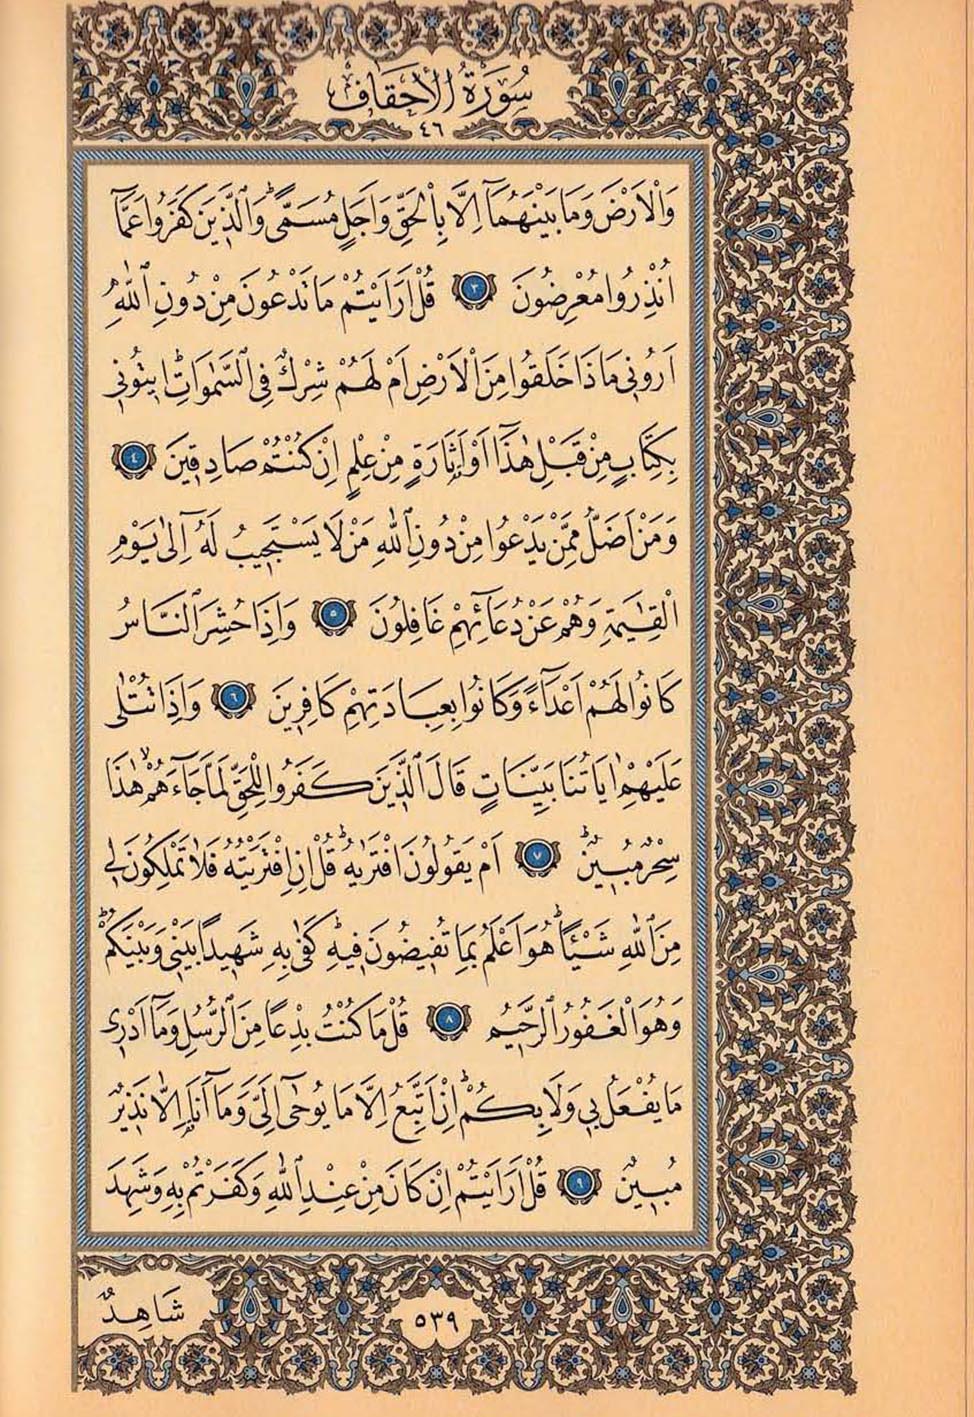 سُورَةُ الْأَحْقَافِ
٤٦
وَالْاَرْضَ وَمَا بَيْنَهُمَٓا اِلَّا بِالْحَقِّ وَاَجَلٍ مُسَمًّىۜ وَالَّذ۪ينَ كَفَرُوا عَمَّٓا
اُنْذِرُوا مُعْرِضُونَ ﴿٣﴾ قُلْ اَرَاَيْتُمْ مَا تَدْعُونَ مِنْ دُونِ اللّٰهِ
اَرُون۪ي مَاذَا خَلَقُوا مِنَ الْاَرْضِ اَمْ لَهُمْ شِرْكٌ فِي السَّمٰوَاتِۜ ا۪يتُون۪ي
بِكِتَابٍ مِنْ قَبْلِ هٰذَٓا اَوْ اَثَارَةٍ مِنْ عِلْمٍ اِنْ كُنْتُمْ صَادِق۪ينَ ﴿٤﴾
وَمَنْ اَضَلُّ مِمَّنْ يَدْعُوا مِنْ دُونِ اللّٰهِ مَنْ لَا يَسْتَج۪يبُ لَهُٓ اِلٰى يَوْمِ
الْقِيٰمَةِ وَهُمْ عَنْ دُعَٓائِهِمْ غَافِلُونَ ﴿٥﴾ وَاِذَا حُشِرَ النَّاسُ
كَانُوا لَهُمْ اَعْدَٓاءً وَكَانُوا بِعِبَادَتِهِمْ كَافِر۪ينَ ﴿٦﴾ وَاِذَا تُتْلٰى
عَلَيْهِمْ اٰيَاتُنَا بَيِّنَاتٍ قَالَ الَّذ۪ينَ كَفَرُوا لِلْحَقِّ لَمَّا جَٓاءَهُمْۙ هٰذَا
سِحْرٌ مُب۪ينٌۜ ﴿٧﴾ اَمْ يَقُولُونَ افْتَرٰيهُۜ قُلْ اِنِ افْتَرَيْتُهُ فَلَا تَمْلِكُونَ ل۪ي
مِنَ اللّٰهِ شَيْـًٔاۜ هُوَ اَعْلَمُ بِمَا تُف۪يضُونَ ف۪يهِۜ كَفٰى بِه۪ شَه۪يداً بَيْن۪ي وَبَيْنَكُمْۜ
وَهُوَ الْغَفُورُ الرَّح۪يمُ ﴿٨﴾ قُلْ مَا كُنْتُ بِدْعاً مِنَ الرُّسُلِ وَمَٓا اَدْر۪ي
مَا يُفْعَلُ ب۪ي وَلَا بِكُمْۜ اِنْ اَتَّبِعُ اِلَّا مَا يُوحٰٓى اِلَيَّ وَمَٓا اَنَا۬ اِلَّا نَذ۪يرٌ
مُب۪ينٌ ﴿٩﴾ قُلْ اَرَاَيْتُمْ اِنْ كَانَ مِنْ عِنْدِ اللّٰهِ وَكَفَرْتُمْ بِه۪ وَشَهِدَ
شَاهِدٌ
٥٣٩